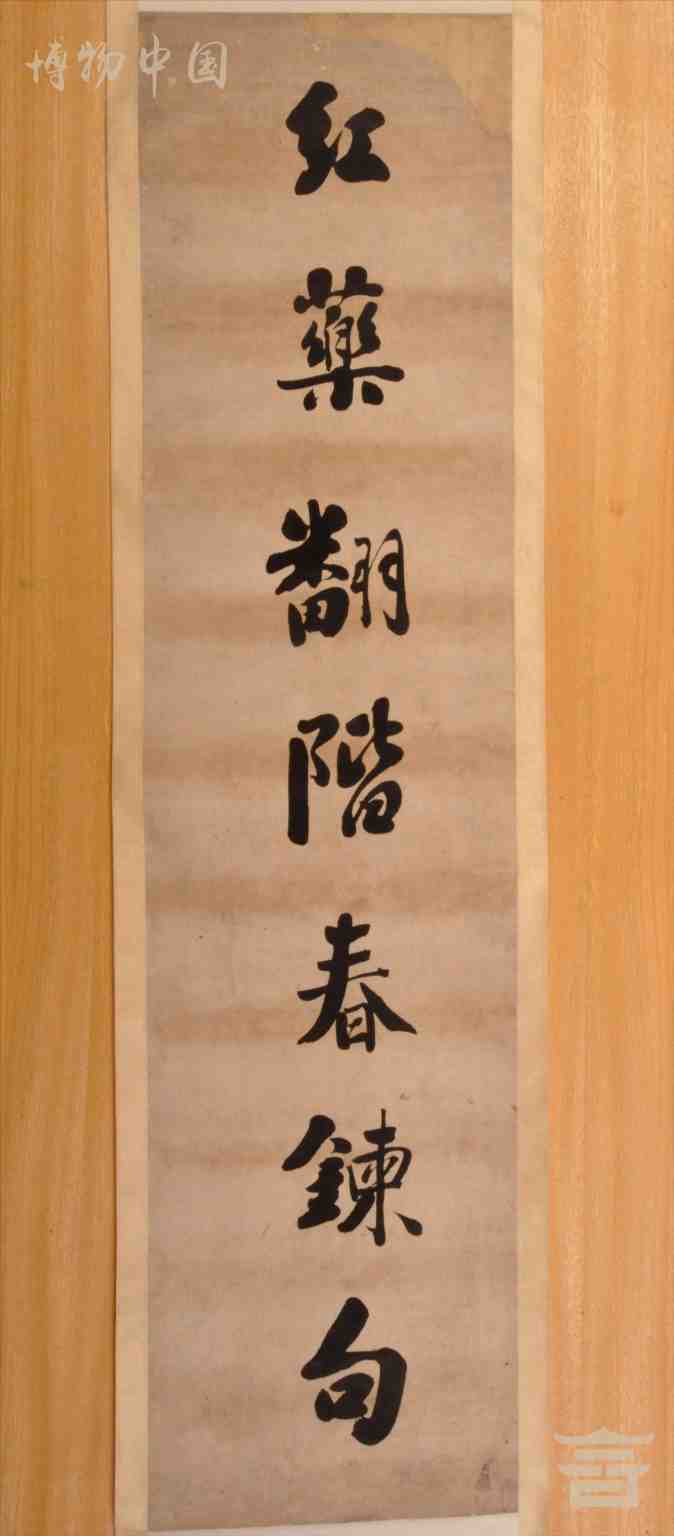 博物中国
紅藥翻階春鍊句